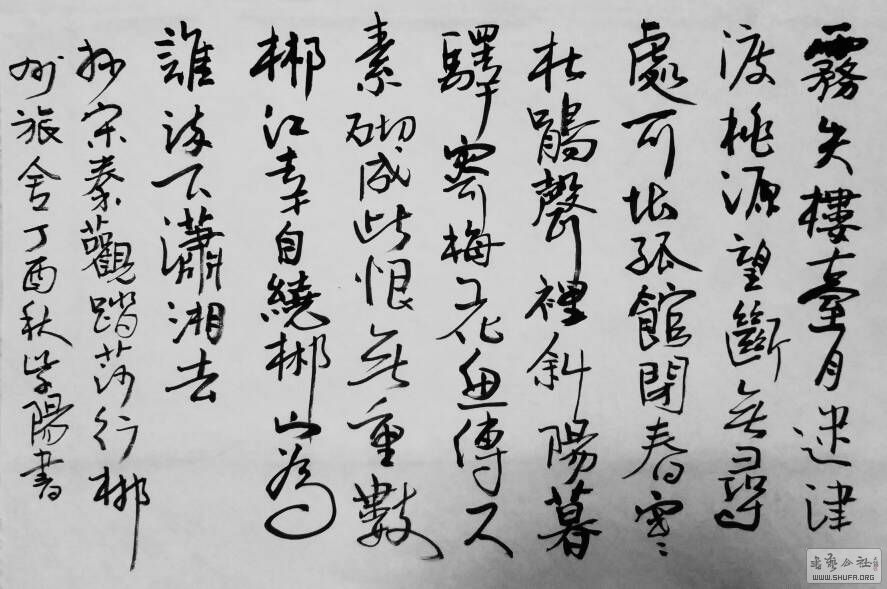 霧失樓臺月迷津
渡桃源望斷無尋
處可堪孤館閉春寒
杜鵑聲裡斜陽暮
驛寄梅花魚傳尺
素砌成此恨無重數
郴江幸自繞郴山為
誰流下瀟湘去
抄宋秦觀踏莎行郴
州旅舍丁酉秋陽書
書藝公社
WWW.SHUFA.ORG